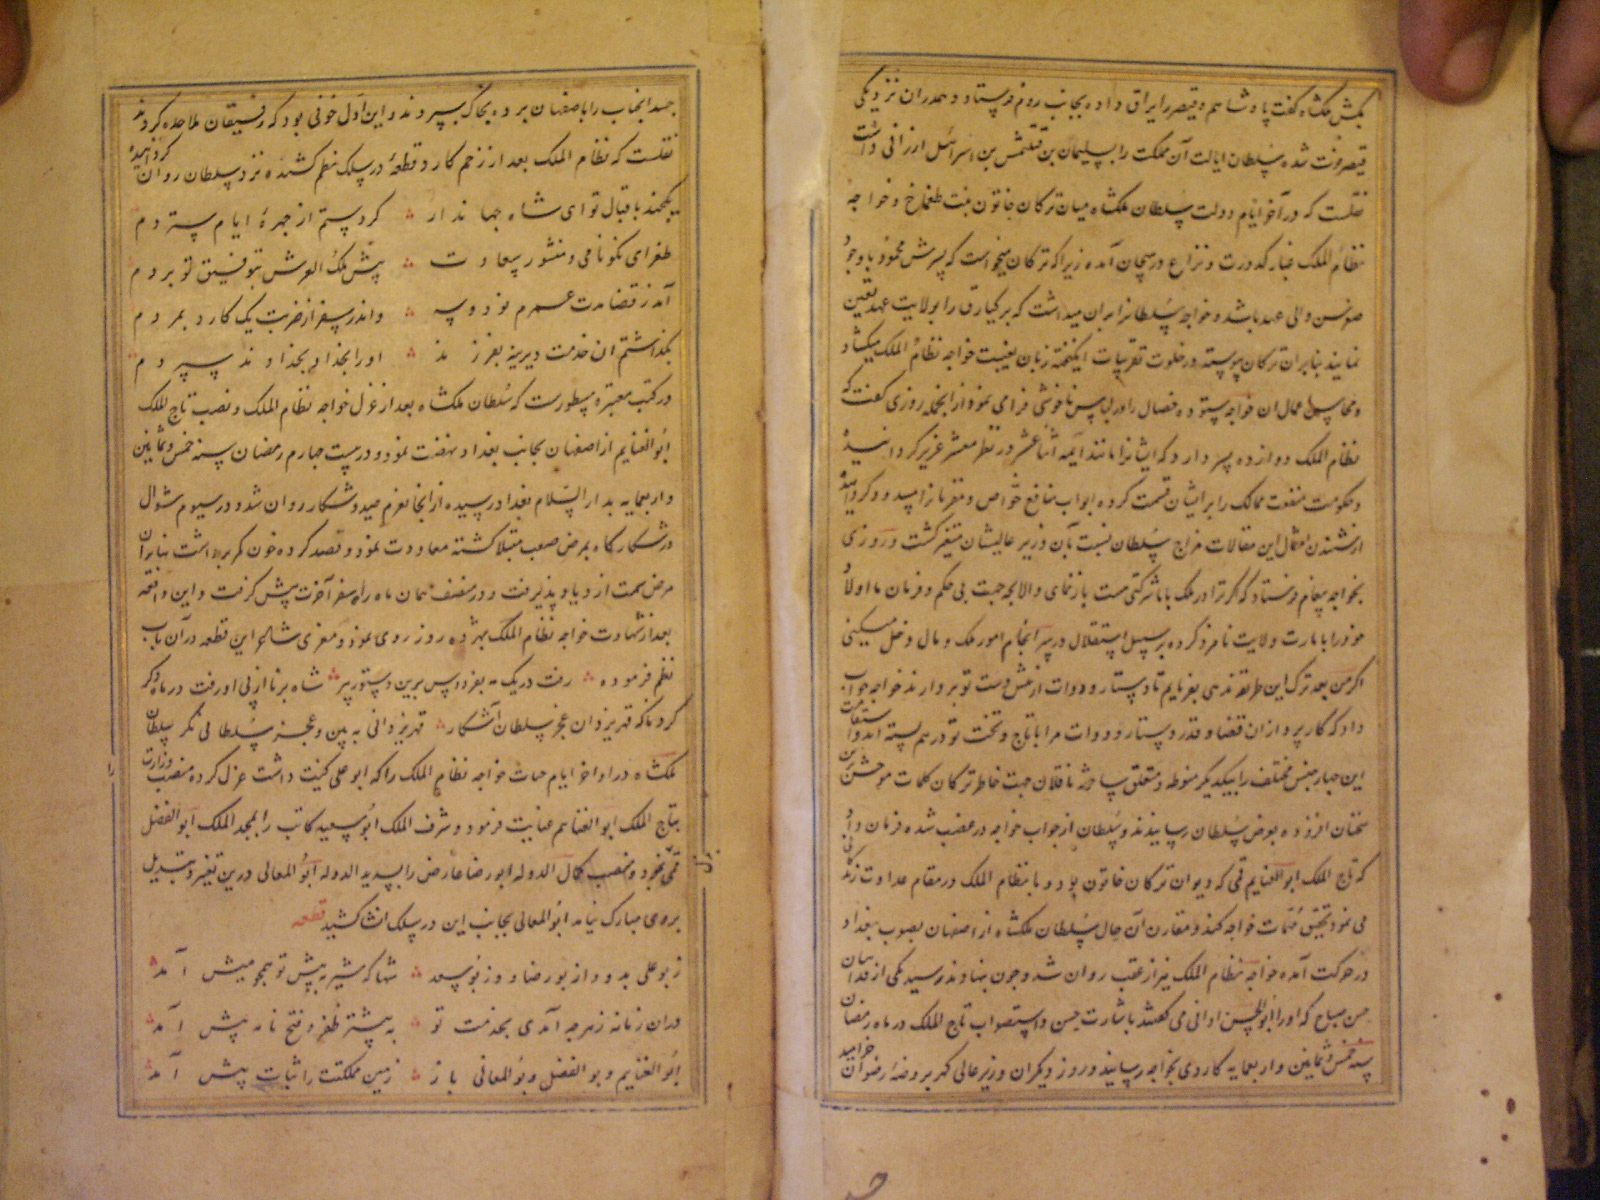 بکش ملکشاه گفت پادشاهم و قیصر را یراق داده بجانب روم فرستاد و همدران نزدیکی
قیصر فوت شده سلطان ایالت آن مملکت را بسلیمان بن قتلمش بن اسرائیل ارزانی داشت
نقلست که در آخر ایام دولت سلطان ملکشاه میان ترکان خاتون بنت طمغاج و خواجه
نظام الملک غبار کدورت و نزاع در هیجان آمده زیرا که ترکان میخواست که پسرش محمود با وجود
صغر سن والی عهد باشد و خواجه سلطانرا بران میداشت که برکیارق را بولایت عهد تعین
نماید بنابران ترکان پیوسته در خلوت تقریبات انگیخته زبان بغیبت خواجه نظام الملک میکشاد
و محاسن اعمال ان خواجه ستوده خصال را در لباس ناخوشی فرا می نمود از انجمله روزی گفت که
نظام الملک دوازده پسر دارد که ایشانرا مانند ایمه اثنا عشر در نظر معشر عزیز گردانیده
و حکومت منفعت ممالک را بر ایشان قسمت کرده ابواب منافع خواص و مقربانرا مسدود گردانیده
از شنیدن امثال این مقالات مزاج سلطان نسبت بآن وزیر عالیشان متغیر گشت و روزی
بخواجه پیغام فرستاد که اگر ترا در ملک با ما شرکتی هست باز نمای والا بچه جهت بی حکم و فرمان ما اولاد
خود را بامارت ولایت نامزد کرده بر سبیل استقلال در سر انجام امور ملک و مال دخل میکنی
اگر من بعد ترک این طریقه ندهی بفرمایم تا دستار و دوات از پیش دست تو بردارند خواجه جواب
داد که کارپردازان قضا و قدر دستار و دوات مرا با تاج و تخت تو درهم بسته اند و استقامت
این چهار جنس مختلف را بیکدیگر منوط و متعلق ساخته ناقلان جهت خاطر ترکان کلمات موحش برین
سخنان افزوده بعرض سلطان رسانیدند و سلطان از جواب خواجه در غضب شده فرمان داد
که تاج الملک ابو الغنایم قمی که دیوان ترکان خاتون بود و با نظام الملک در مقام عداوت زندگانی
می نمود تحقیق مهمات خواجه کند و مقارن آن حال سلطان ملکشاه از اصفهان بصوب بغداد
در حرکت آمده خواجه نظام الملک نیز از عقب روان شد و چون بنهاوند رسید یکی از فداییان
حسن صباح که او را ابو طاهر اوانی می گفتند باشارت حسن و استصواب تاج الملک در ماه رمضان
سنه خمس و ثمانین و اربعمایه کاردی بخواجه رسانید و روز دیگران وزیر عالی گهر بروضه رضوان خرامید
جسد انجناب را باصفهان برده بخاک سپردند و این اول خونی بود که رفیقان ملاحده کردند
نقلست که نظام الملک بعد از زخم کارد قطعه در سلک نظم کشیده نزد سلطان روان گردانید
یکچند باقبال تو ای شاه جهاندار ؞ گرد ستم از چهره ایام ستردم
طغرای نکونامی و منشور سعادت ؞ پیش ملک العرش بتوقیع تو بردم
آمد ز قضا مدت عمرم نود و سه ؞ و اندر سفر از ضربت یک کارد بمردم
بگذاشتم ان خدمت دیرینه بفرزند ؞ او را بخدا و بخداوند سپردم
در کتب معتبره مسطورست که سلطان ملکشاه بعد از عزل خواجه نظام الملک و نصب تاج الملک
ابو الغنایم از اصفهان بجانب بغداد نهضت نمود و در بیست چهارم رمضان سنه خمس و ثمانین
و اربعمایه بدار السلام بغداد رسیده از انجا بعزم صید و شکار روان شد و در سیوم شوال
در شکارگاه بمرض صعب مبتلا گشته معاودت نمود و قصد کرده خون کمتر برداشت بنابران
مرض سمت ازدیاد پذیرفت و در منتصف همان ماه راه سفر آخرت پیش گرفت و این واقعه
بعد از شهادت خواجه نظام الملک بهژده روز روی نمود و معزی شاعر این قطعه در آن باب
نظم فرموده ؞ رفت در یک مه بفردوس برین دستور پیر ؞ شاه برنا از پی او رفت در ماه دگر
کرد ناگه قهر یزدان عجز سلطان آشکار ؞ قهر یزدانی به بین و عجز سلطانی نگر سلطان
ملکشاه در اواخر ایام حیات خواجه نظام الملک را که ابو علی کنیت داشت عزل کرده منصب وزارت
بتاج الملک ابو الغنایم عنایت فرمود و شرف الملک ابو سعید کاتب را بمجد الملک ابو الفضل
قمی و منصب کمال الدوله ابو رضا عارض را بسدید الدوله ابو المعالی درین تغیر و تبدیل
بروی مبارک نیامد ابو المعالی بجانب این در سلک انشا کشید قطعه
ز بو علی بد و از بو رضا و از بو سعد ؞ شها که شیر به پیش تو همچو میش آمد
در آن زمانه ز هر چه آمدی بخدمت تو ؞ به پیشتر ظفر و فتح نامه پیش آمد
ابو الغنایم و بو الفضل و بو المعالی باز ؞ زمین مملکتت را ثبات پیش آمد